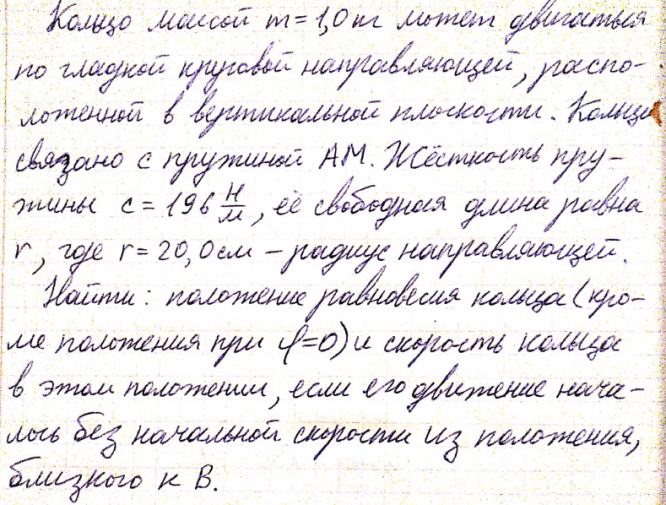 Кольцо массой m = 1,0 кг может двигаться
по гладкой круговой направляющей, распо-
ложенной в вертикальной плоскости. Кольцо
связано с пружиной АМ. Жёсткость пру-
жины c = 196 Н/м, её свободная длина равна
r, где r = 20,0 см – радиус направляющей.
Найти: положение равновесия кольца (кро-
ме положения при φ=0) и скорость кольца
в этом положении, если его движение нача-
лось без начальной скорости из положения,
близкого к В.